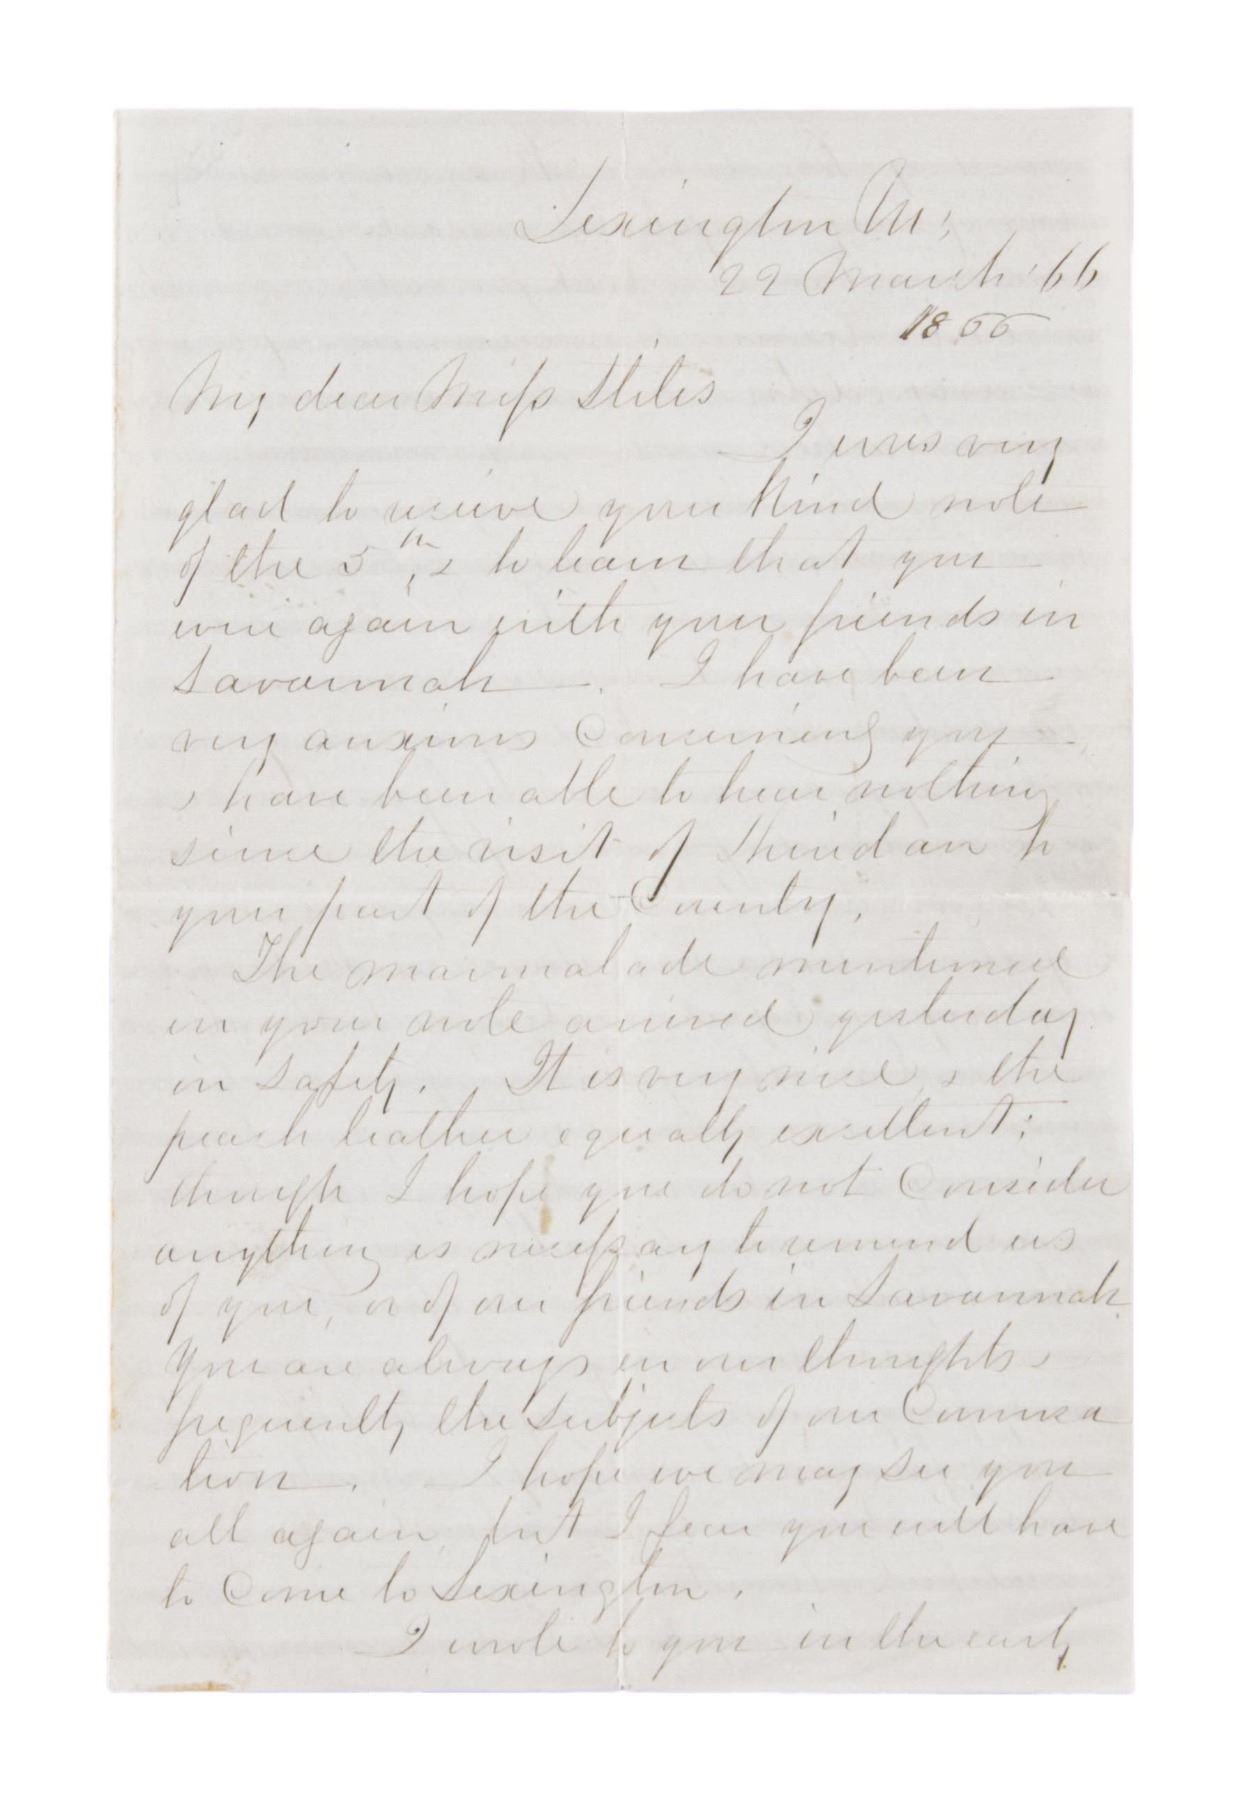 Lexington Va:
22 March '66
1866
My dear Miss Stiles
I was very
glad to receive your kind note
of the 5th, & to learn that you
were again with your friends in
Savannah. I have been
very anxious concerning you
& have been able to hear nothing
since the visit of Sheridan to
your part of the Country.
The marmalade mentioned
in your note arrived yesterday
in safety. It is very nice, & the
peach leather equally excellent:
though I hope you do not consider
anything is necessary to remind us
of you, or of our friends in Savannah.
You are always in our thoughts &
frequently the subjects of our Conversa
tion. I hope we may see you
all again, but I fear you will have
to Come to Lexington.
I wrote to you in the early